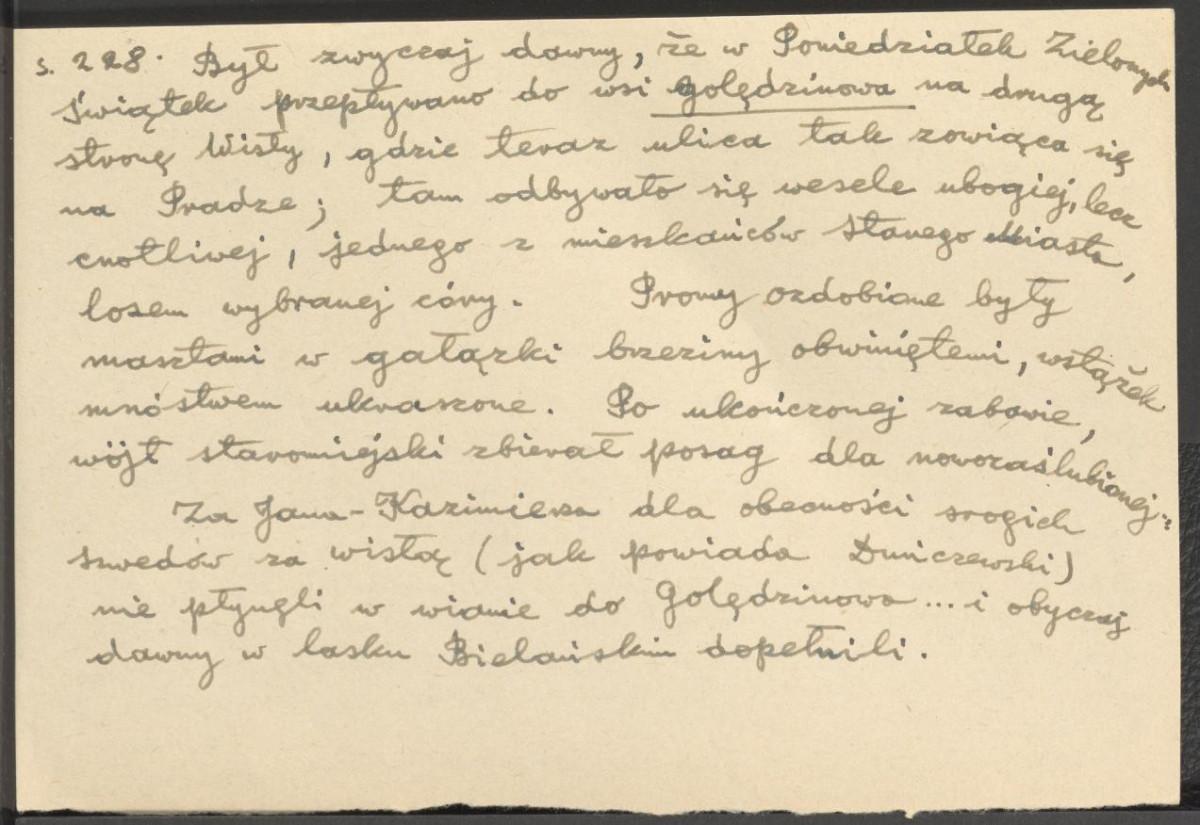 s. 228. Był zwyczaj dawny, że w Poniedziałek Zielonych
świątek przepływano do wsi Golędzinowa na drugą
stronę Wisły, gdzie teraz ulica tak zowiąca się
na Pradze; tam odbywało się wesele ubogiej, lecz
cnotliwej, jednego z mieszkańców starego Miasta,
losem wybranej córy. Promy ozdobione były
masztami w gałązki brzeziny obwiniętemi, wstążek
mnóstwem ukraszone. Po ukończonej zabawie,
wójt staromiejski zbierał posag dla nowozaślubionej..
Za Jana-Kazimierza dla obecności srogich
szwedów za wisłą (jak powiada Duńczewski)
nie płynęli w wianie do Golędzinowa ... i obyczaj
dawny w lasku Bielańskim dopełnili.